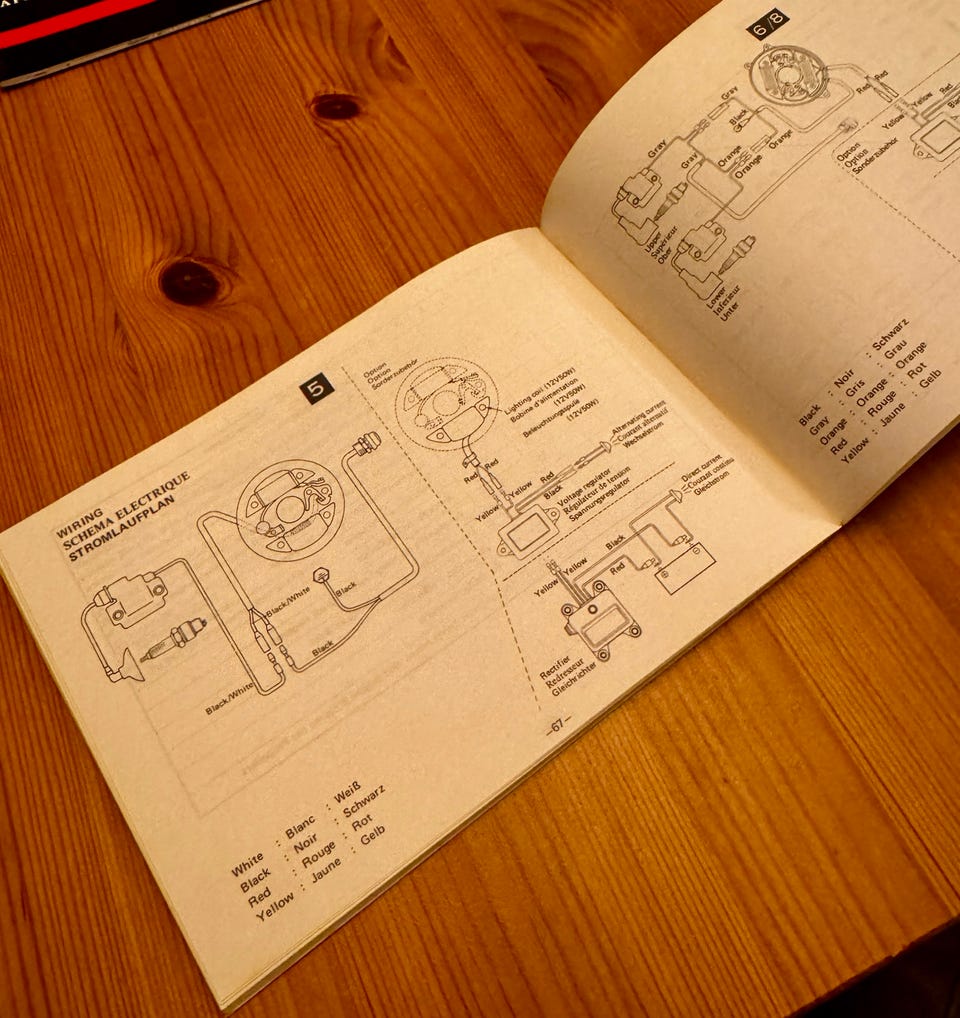 5
WIRING
SCHEMA ELECTRIQUE
STROMLAUFPLAN
Black/White
Black
Black
Black/White
Option
Option
Sonderzubehör
Lighting coil (12V50W)
Bobine d'alimentation
(12V50W)
Beleuchtungsspule
(12V50W)
Red
Red
Yellow
Yellow
Red
Black
Alternating current
Courant alternatif
Wechselstrom
Voltage regulator
Régulateur de tension
Spannungsregulator
Direct current
Courant continu
Gleichstrom
Yellow
Yellow
Black
Red
Rectifier
Redresseur
Gleichrichter
White : Blanc : Weiß
Black : Noir : Schwarz
Red : Rouge : Rot
Yellow : Jaune : Gelb
–67–
6/8
Gray
Black
Gray
Gray
Orange
Orange
Orange
Red
Red
Yellow
Yellow
Red
Option
Option
Sonderzubehör
Upper
Supérieur
Ober
Lower
Inférieur
Unter
Black : Noir : Schwarz
Gray : Gris : Grau
Orange : Orange : Orange
Red : Rouge : Rot
Yellow : Jaune : Gelb